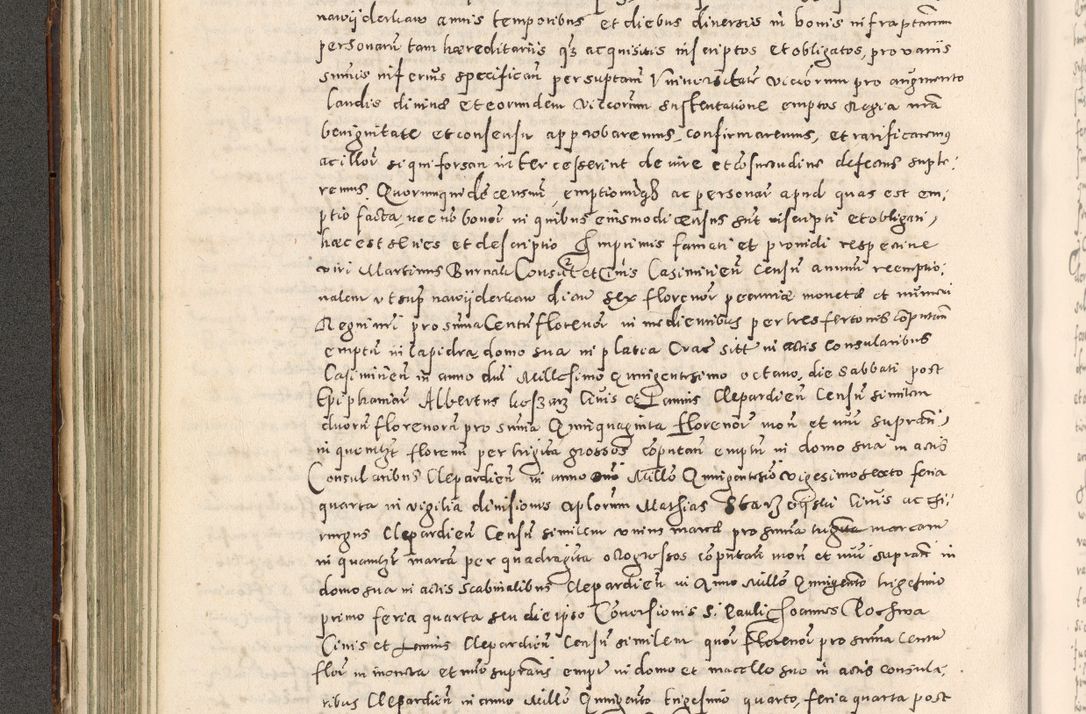 nawijderkaw annis temporibus et diebus diversis in bonis infrapt͠arum
personarũ tam hæreditariis q̃ꝫ acquisitis inscriptos et obligatos, pro variis
sum̃is inferius specificañ per supt͠am Universitate͠ vicc͠iorum pro augmento
laudis divinæ et eorundem viccorum sustentatione emptos Regia nr͠a
benignitate et consensu approbaremus, confirmaremus, et ratificaremus
ac illor͠ si qui forsan intercesserint de iure et co͠suetudine defectus supple-
remus. Quorumquid͠e censuũ, emptionũqꝫ ac personar͠ apud quas est em-
ptio facta, nec no͠ bonor͠ in quibus eiusmodi census su͠t inscripti et obligati,
hæc est series et descriptio Imprimis famati et providi respective
viri Martinus Burnak Consul et Civis Casimirien͠ Censũ annuũ reemptio-
nalem ut sup͠ nawijderkaw dictũ sex florenor͠ pecuniæ monetæ et numeri
Regni nr͠i pro sum͠a Centũ florenor͠ in medietatibus per tres fertones co͠putan͠
emptũ in lapidea domo sua in platea Crac͠ sitæ in actis consularibus
Casimirien͠ in anno dn͠i Millesimo Quingentesimo octavo, die Sabbati post
Epiphaniar͠ Albertus Civis et Lanius Clepardien͠ Censũ similem
duorũ florenorũ pro sum͠a Quinquaginta florenor͠ mon͠ et nu͠i suprad͠,
in quemli͠t florenũ per triginta grossos co͠putan͠ emptũ in domo sua in actis
Consularibus Clepardien͠ in anno Millo͠ Quingentesi͠o vigesimo sexto feria
quarta in vigilia divisionis aplorum Mathias Civis ac chi-
rurgus Clepardien͠ Censũ similem unius marcæ pro sum͠a triginta marcarũ
in quamli͠t marcã per quadraginta octo grossos co͠putan͠ mon͠ et nu͠i suprad͠ in
domo sua in actis Scabinalibus Clepardien͠ in Anno Millo͠ Quingento͠ trigesimo
primo feria quarta seu die ipso Conversionis S. Pauli Joannes Rochwa
Civis et Lanius Clepardien͠ Censũ similem quor͠ florenor͠ pro sum͠a centũ
flor͠ in moneta et nu͠o supra͠tis emptũ in domo et macello suo in actis consula-
ribus Clepardien͠ in anno Millo͠ Quingento͠ trigesimo quarto, feria quarta post